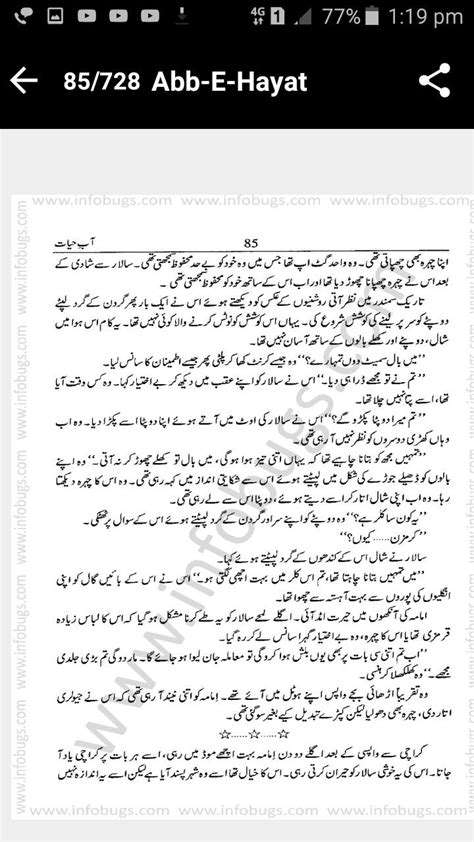 4G 1 77% 1:19 pm
85/728 Abb-E-Hayat
www.infobugs.com www.infobugs.com www.infobugs.com
آب حیات 85
اپنا چہرہ بھی چھپاتی تھی۔ وہ واحد گٹ اپ تھا جس میں وہ خود کو بے حد محفوظ سمجھتی تھی۔ سالار سے شادی کے
بعد اس نے چہرہ چھپانا چھوڑ دیا تھا اور اب اس کے ساتھ خود کو محفوظ سمجھتی تھی۔
تاریک سمندر میں نظر آتی روشنیوں کے عکس کو دیکھتے ہوئے اس نے ایک بار پھر گردن کے گرد لپٹے
دوپٹے کو سر پر لینے کی کوشش شروع کی۔ یہاں اس کوشش کو نوٹس کرنے والا کوئی نہیں تھا۔ یہ کام اس ہوا میں
شال، دوپٹے اور کھلے بالوں کے ساتھ آسان نہیں تھا۔
’’میں بال سمیٹ دوں تمہارے؟‘‘ وہ جیسے کرنٹ کھا کر پلٹی پھر جیسے اطمینان کا سانس لیا۔
’’تم نے تو مجھے ڈرا ہی دیا۔‘‘ اس نے سالار کو اپنے عقب میں دیکھ کر بے اختیار کہا۔ وہ کس وقت آیا
تھا، اسے پتا نہیں چلا تھا۔
’’تم میرا دوپٹا پکڑو گے؟‘‘ اس نے سالار کی اوٹ میں آتے ہوئے اپنا دوپٹا اسے پکڑا دیا۔ وہ اب
وہاں کھڑی دوسروں کو نظر نہیں آ رہی تھی۔
’’تمہیں مجھ کو بتانا چاہیے تھا کہ یہاں اتنی تیز ہوا ہو گی، میں بال تو کھلے چھوڑ کر نہ آتی۔‘‘ وہ اپنے
بالوں کو ڈھیلے جوڑے کی شکل میں لپیٹتے ہوئے اس سے شکایتی انداز میں کہہ رہی تھی۔ وہ اس کا چہرہ دیکھتا
رہا۔ وہ اب اپنی شال اتار کر اسے دیتے ہوئے، دوپٹا اس سے لے رہی تھی۔
’’یہ کون سا کلر ہے؟‘‘ وہ دوپٹے کو اپنے سر اور گردن کے گرد لپیٹتے ہوئے اس کے سوال پر ٹھٹکی۔
’’کرمزن...... کیوں؟‘‘
سالار نے شال اس کے کندھوں کے گرد لپیٹتے ہوئے کہا۔
’’میں تمہیں بتانا چاہتا تھا، تم اس کلر میں بہت اچھی لگتی ہو۔‘‘ اس نے اس کے بائیں گال کو اپنی
انگلیوں کی پوروں سے بہت آہستہ سے چھوا تھا۔
امامہ کی آنکھوں میں حیرت اُمڈ آئی۔ اگلے لمحے سالار کو یہ طے کرنا مشکل ہو گیا کہ اس کا لباس زیادہ
قرمزی تھا یا اس کا چہرہ، وہ بے اختیار گہرا سانس لے کر رہ گیا۔
’’اب تم اتنی سی بات پر بھی یوں بلش ہوا کرو گی تو معاملہ جان لیوا ہو جائے گا۔ مار دو گی تم بڑی جلدی
مجھے۔‘‘ وہ کھلکھلا کر ہنسی۔
وہ تقریباً اڑھائی بجے واپس اپنے ہوٹل میں آئے تھے۔ امامہ کو اتنی نیند آ رہی تھی کہ اس نے جیولری
اتار دی، چہرہ بھی دھو لیا لیکن کپڑے تبدیل کیے بغیر سو گئی تھی۔
☆......☆......☆
کراچی سے واپسی کے بعد اگلے دو دن امامہ بہت اچھے موڈ میں رہی، اسے ہر بات پر کراچی یاد آ
جاتا۔ اس کی یہ خوشی سالار کو حیران کرتی رہی۔ اس کا خیال تھا اسے وہ شہر پسند آیا ہے لیکن اسے یہ اندازہ نہیں
www.infobugs.com www.infobugs.com www.infobugs.com